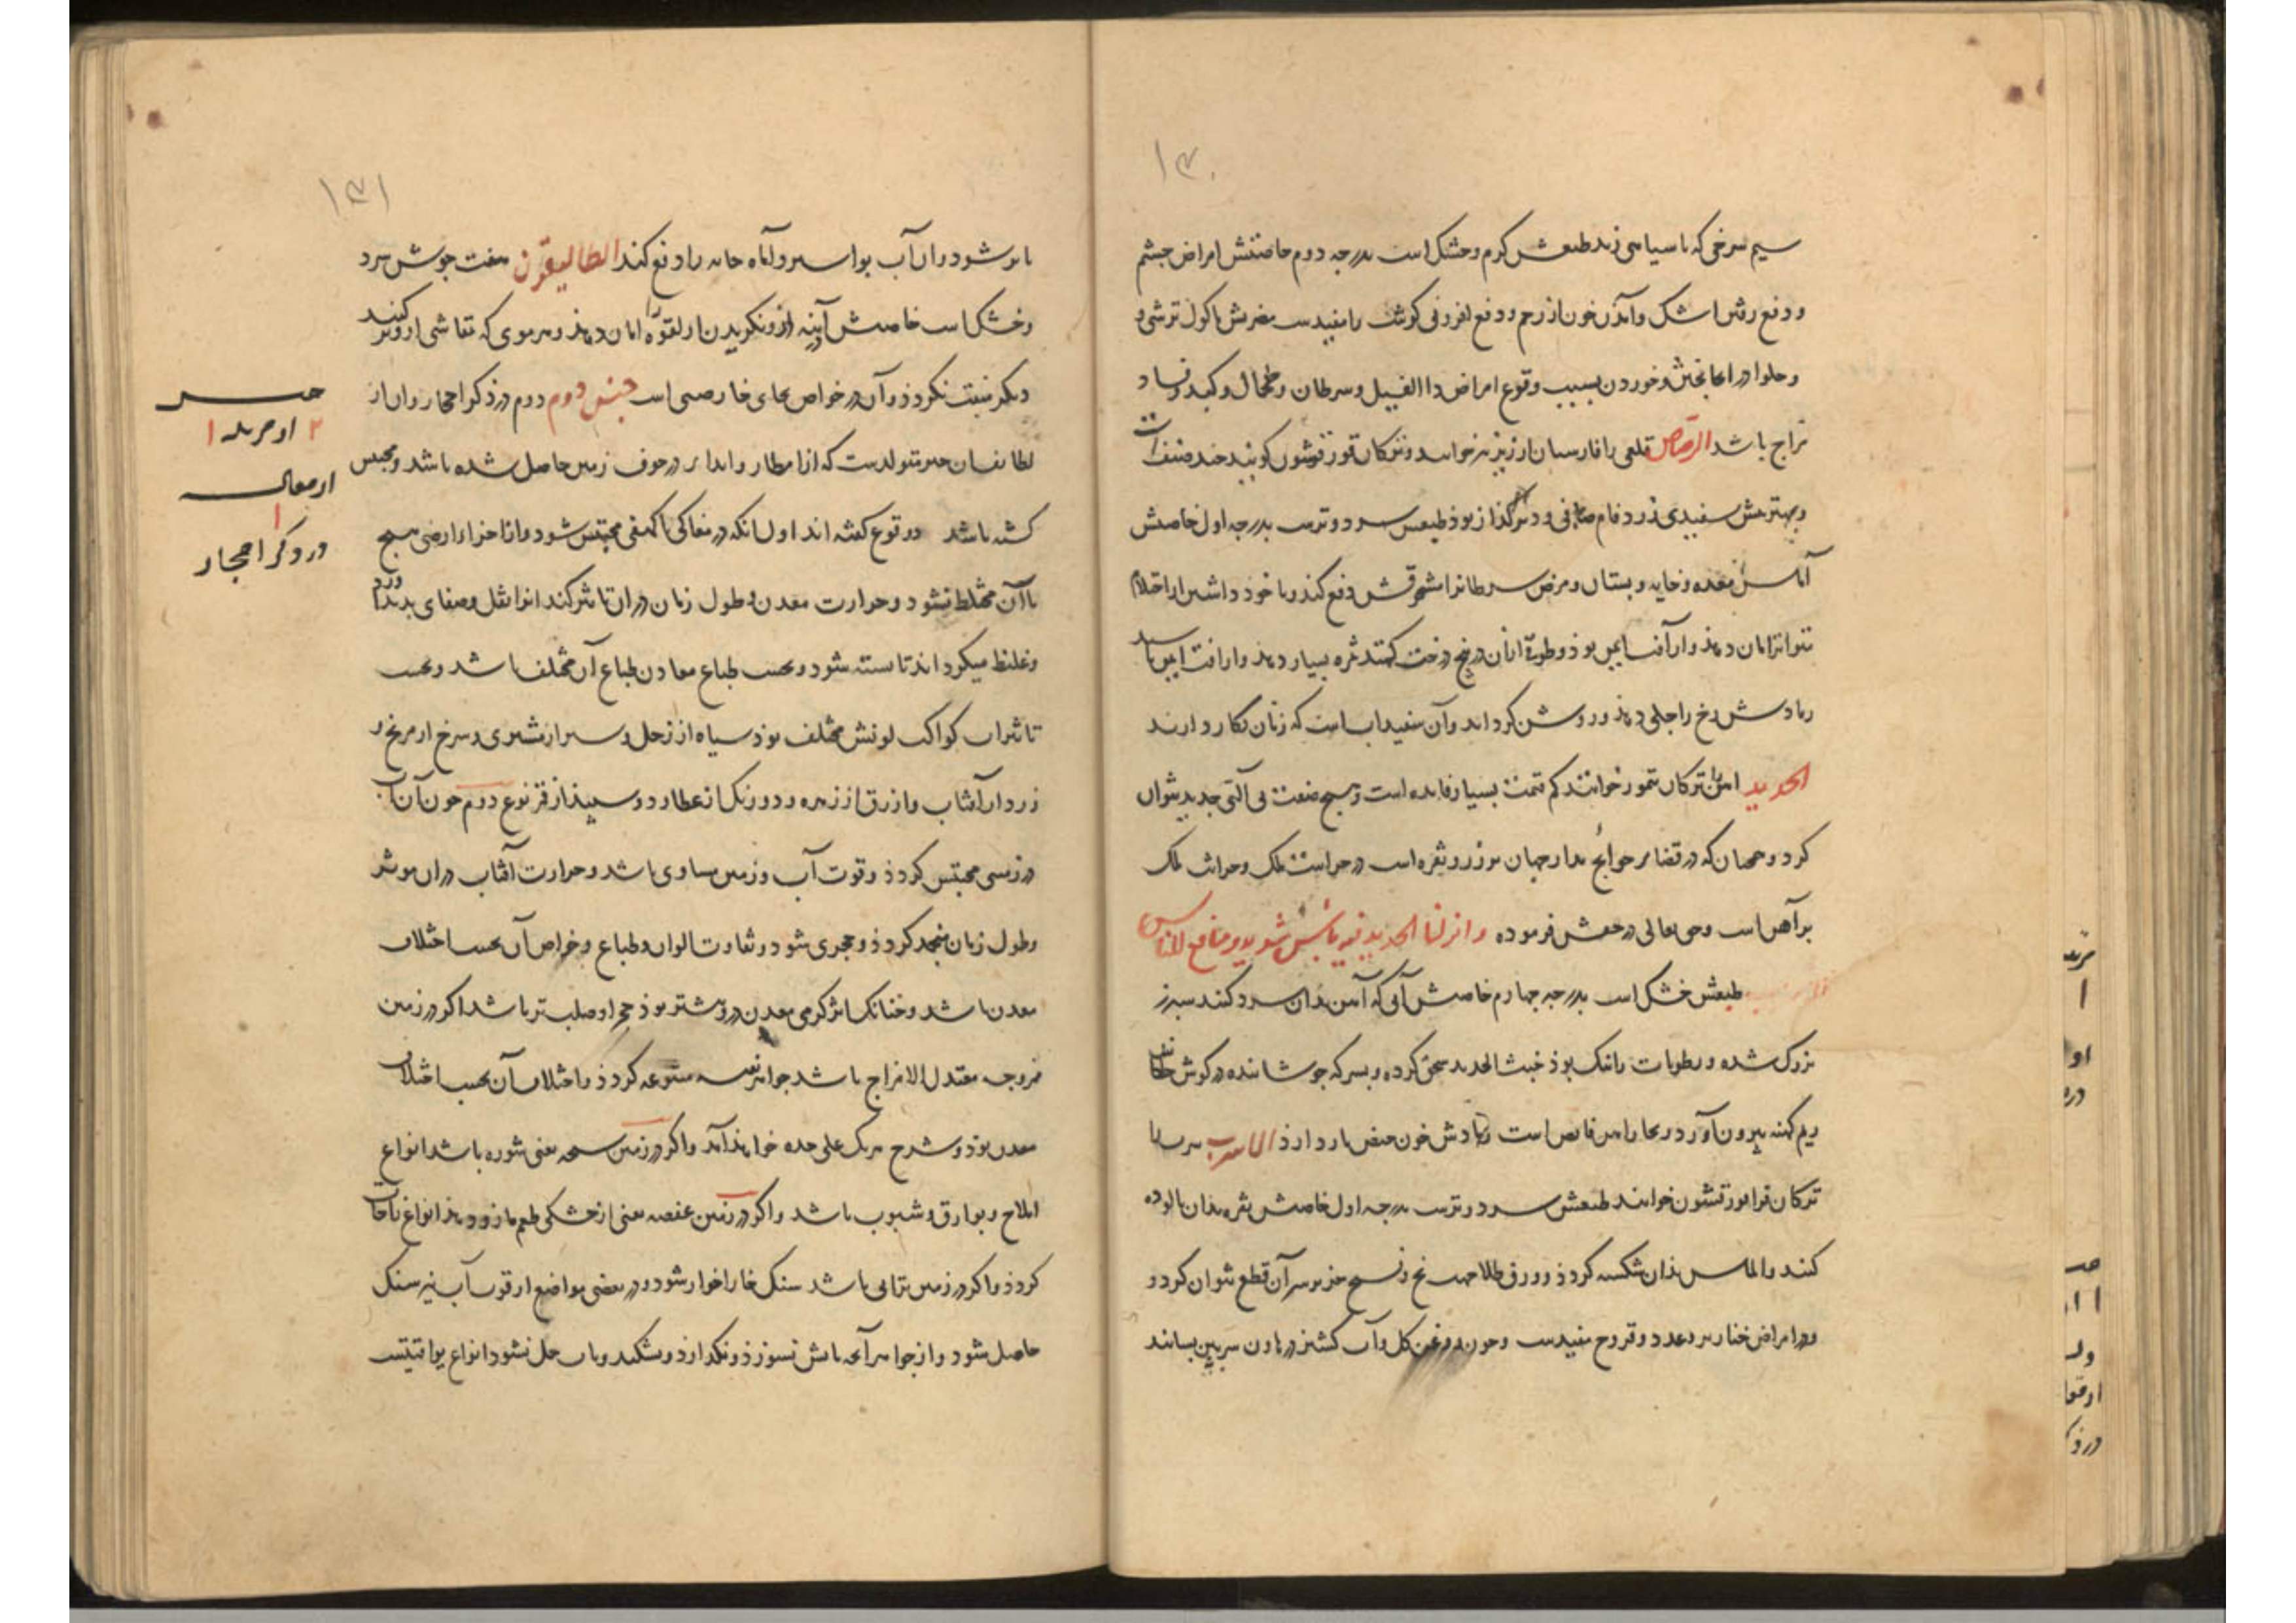 ۱۳۰
سیم سرخی که با سیاهی زند طبعش کرم و خشک است بدرجه دوم خاصیتش امراض چشم
و دفع رفتن اشک و آمدن خون از رحم و دفع افزونی کوشت را مفیدست مضرتش ماکول ترشی و
و حلوا در خوردن بسبب وقوع امراض داالفیل و سرطان و طحال و کبد و فساد
مزاج باشد الرصاص قلعی را فارسیان ارزیز خوانند و ترکان کویند چند صنف است
و بهترینش سفیدی زرد فام صافی و دیر کذاز بوذ طبعش سرد و ترست بدرجه اول خاصیتش
آماس مقعده و خایه و پستان و مرض سرطانرا دفع کند و با خوذ داشتن از احتلام
امان دهذ و از آفت ایمن بوذ و طوق از آن در بیخ درخت کنند ثمره بسیار دهذ و از آفت ایمن باشد
رمادش رخ را جلی دهذ و روشن کرداند و آن سفیداب است که زنان بکار دارند
الحدید آهن را ترکان تمور خوانند کم قیمت بسیار فایده است و هیچ صنعت بی آلتی حدید نتوان
کرد و همچنان که در قضاء حوایج مدار جهان بر زر و نقره است در حراست ملک و حراثت ملک
بر آهن است و حق تعالی در حقش فرموده و انزلنا الحدید فیه بأس شدید و منافع للناس
طبعش خشک است بدرجه چهارم خاصیتش آبی که آهن بدان سرد کنند سپرز
بزرک شده و رطوبات را نیک بوذ خبث الحدید سحق کرده و بسرکه جوشانده در کوش چکانند
ریم کهنه بیرون آورد رمادش خون حیض باز دارذ الاسرب
ترکان قرا قورتشون خوانند طبعش سرد و ترست بدرجه اول خاصیتش نقره بدان پالوده
کنند و الماس بذان شکسته کردذ و ورق طلا جهت نخ و نسیج جز بر سر آن قطع نتوان کرد و
و در امراض خنازیر و غدد و قروح مفیدست و چون بروغن کل و آب کشنیز در هاون سربین بسایند
۱۳۱
تا شود در آن آب بواسیر و آماه خایه را دفع کند الطالیقون هفت جوش سرد
و خشک است خاصیتش آینه ازو نکریدن از لقوه امان دهذ و هر موی که بمنقاشی ازو بر کنند
دیکر نبت نکردذ و آن در خواص بجای خارصینی است جنس دوم دوم در ذکر احجار و آن از
لطایفسان متولدست که از امطار و انداء در جوف زمین حاصل شده باشد و محتبس
کشته باشد دو نوع کفته اند اول آنکه در مغاکی یا کهفی محتبس شود و از اجزاء ارضی هیچ
با آن مختلط نشود و حرارت معدن و طول زمان در آن تاثیر کند انرا ثقل و صفای پدید آورد
و غلیظ میکرداند تا بسته شود و بحسب طباع معادن طباع آن مختلف باشد و بحسب
تاثیرات کواکب لونش مختلف بوذ سیاه از زحل و سبز از مشتری و سرخ از مریخ و
زرد از آفتاب و ازرق از زهره و دورنک از عطارد و سپیذ از قمر نوع دوم چون آن آب
در زمینی محتبس کردذ و قوت آب و زمین مساوی باشد و حرارت آفتاب در آن موثر
و طول زمان منجمد کردذ و حجری شود و تفاوت الوان و طباع و خواص آن بحسب اختلاف
معدن باشد و چنانک اثر کرمی معدن درو بیشتر بوذ حجر او صلب تر باشد اکر در زمین
معتدل الامزاج باشد جواهر نفیسه متنوعه کردذ و اختلاف آن بحسب اختلاف
معدن بوذ و شرح هر یک علی حده خواهذ آمد و اکر در زمین سبخه یعنی شوره باشد انواع
املاح و بوارق و شبوب باشد و اکر در زمین عفصه یعنی از خشکی طعم مازو دهذ انواع زاجات
کردذ و اکر در زمین باشد سنک خارا خوار شود و در بعضی مواضع از قوت آب نیز سنک
حاصل شود و از جواهر آنچه باتش نسوزذ و نکدازذ و نشکند و باب حل نشود انواع یواقیتست
در ذکر احجار